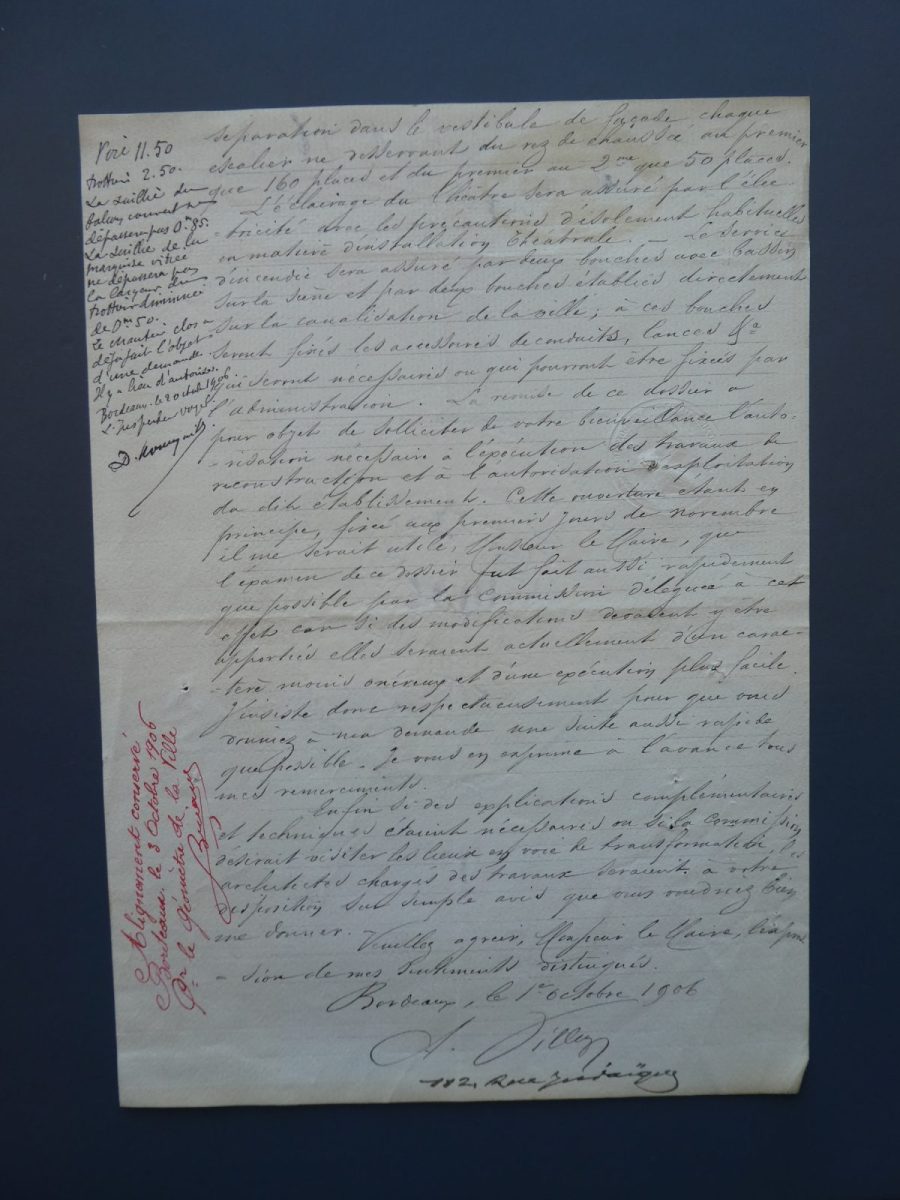 séparation dans le vestibule de façade chaque
escalier ne desservant du rez de chaussée au premier
que 160 places et du premier au 2me que 50 places.
L'éclairage du théâtre sera assuré par l'élec
-tricité avec les précautions d'isolement habituelles
en matière d'installation théâtrale. - Le Service
d'incendie sera assuré par deux bouches avec bassin
sur la scène et par deux bouches établies directement
sur la canalisation de la ville; à ces bouches
seront fixés les accessoires de conduits, lances &a
qui seront nécessaires ou qui pourront être fixés par
l'administration. La remise de ce dossier a
pour objet de solliciter de votre bienveillance l'auto-
-risation nécessaire à l'exécution des travaux de
reconstruction et à l'autorisation d'exploitation
du dit établissement. Cette ouverture étant en
principe, fixée aux premiers jours de novembre
il me serait utile, Monsieur le Maire, que
l'examen de ce dossier fut fait aussi rapidement
que possible par la Commission déléguée à cet
effet car si des modifications devaient y être
apportées elles seraient actuellement d'un carac-
-tère moins onéreux et d'une exécution plus facile.
J'insiste donc respectueusement pour que vous
donniez à ma demande une suite aussi rapide
que possible. Je vous en exprime à l'avance tous
mes remerciments.
Enfin si des explications complémentaires
et techniques étaient nécessaires ou si la commission
désirait visiter les lieux en voie de transformation, les
architectes chargés des travaux seraient à votre
disposition sur simple avis que vous voudriez bien
me donner.
Veuillez agréer, Monsieur le Maire, l'expres
-sion de mes sentiments distingués.
Bordeaux, le 1er octobre 1906
A.
182, Rue Judaïque
Voie 11.50
trottoir 2.50.
La saillie du
balcon couvert ne
dépassera pas 0m85.
La saillie de la
marquise vitrée
ne dépassera pas
la largeur du
trottoir diminuée
de 0m50.
Le chantier clos a
déjà fait l'objet
d'une demande.
Il y a lieu d'autoriser.
Bordeaux le 2 octob 1906.
L'Inspecteur voyer
D.
Alignement conservé
Bordeaux, le 3 Octobre 1906
Pr le Géomètre de la Ville